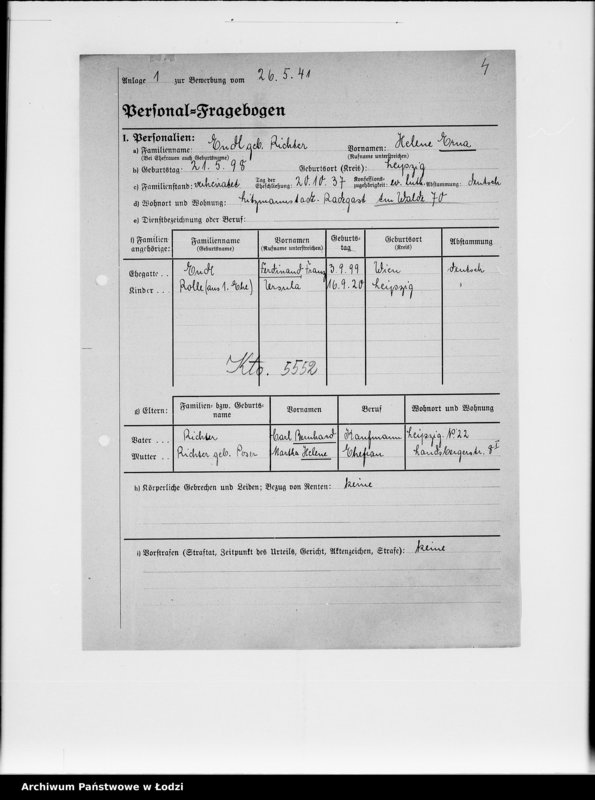 4
Anlage 1 zur Bewerbung vom 26.5.41
Personal-Fragebogen
1. Personalien:
a) Familienname: geb. Richter Vornamen: Helene Erna
(Bei Ehefrauen auch Geburtsname) (Rufname unterstreichen)
b) Geburtstag: 21.5.98 Geburtsort (Kreis): Leipzig
c) Familienstand: verheiratet Tag der Eheschließung: 20.10.37 Konfessionszugehörigkeit: ev. luth. Abstammung: deutsch
d) Wohnort und Wohnung: Litzmannstadt-Radegast Am Walde 70
e) Dienstbezeichnung oder Beruf:
f) Familienangehörige: Familienname (Geburtsname) Vornamen (Rufname unterstreichen) Geburtstag Geburtsort (Kreis) Abstammung
Ehegatte . . Ferdinand Franz 3.9.99 Wien deutsch
Kinder . . . Rolle (aus 1. Ehe) Ursula 16.9.20 Leipzig "
Kto. 5552
g) Eltern: Familien- bzw. Geburtsname Vornamen Beruf Wohnort und Wohnung
Vater . . . Richter Carl Bernhard Kaufmann Leipzig N 22
Mutter . . Richter geb. Poser Martha Helene Ehefrau Landsbergerstr. 8 I
h) Körperliche Gebrechen und Leiden; Bezug von Renten: keine
i) Vorstrafen (Straftat, Zeitpunkt des Urteils, Gericht, Aktenzeichen, Strafe): keine
Archiwum Państwowe w Łodzi